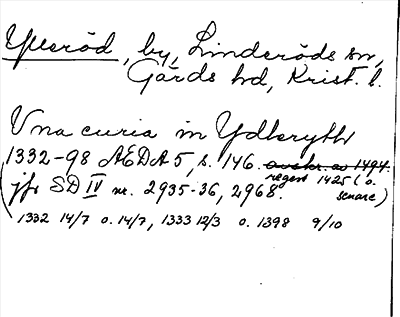 Ylleröd, by, Linderöds sn,
Gärds hd, Krist. l.
Vna curia in Ydleryth
1332-98 ÆDA 5, s. 146. avskr. av 1494.
regest 1425 (o. senare)
(jfr SD IV nr. 2935-36, 2968.
1332 14/7 o. 14/7, 1333 12/3 o. 1398 9/10